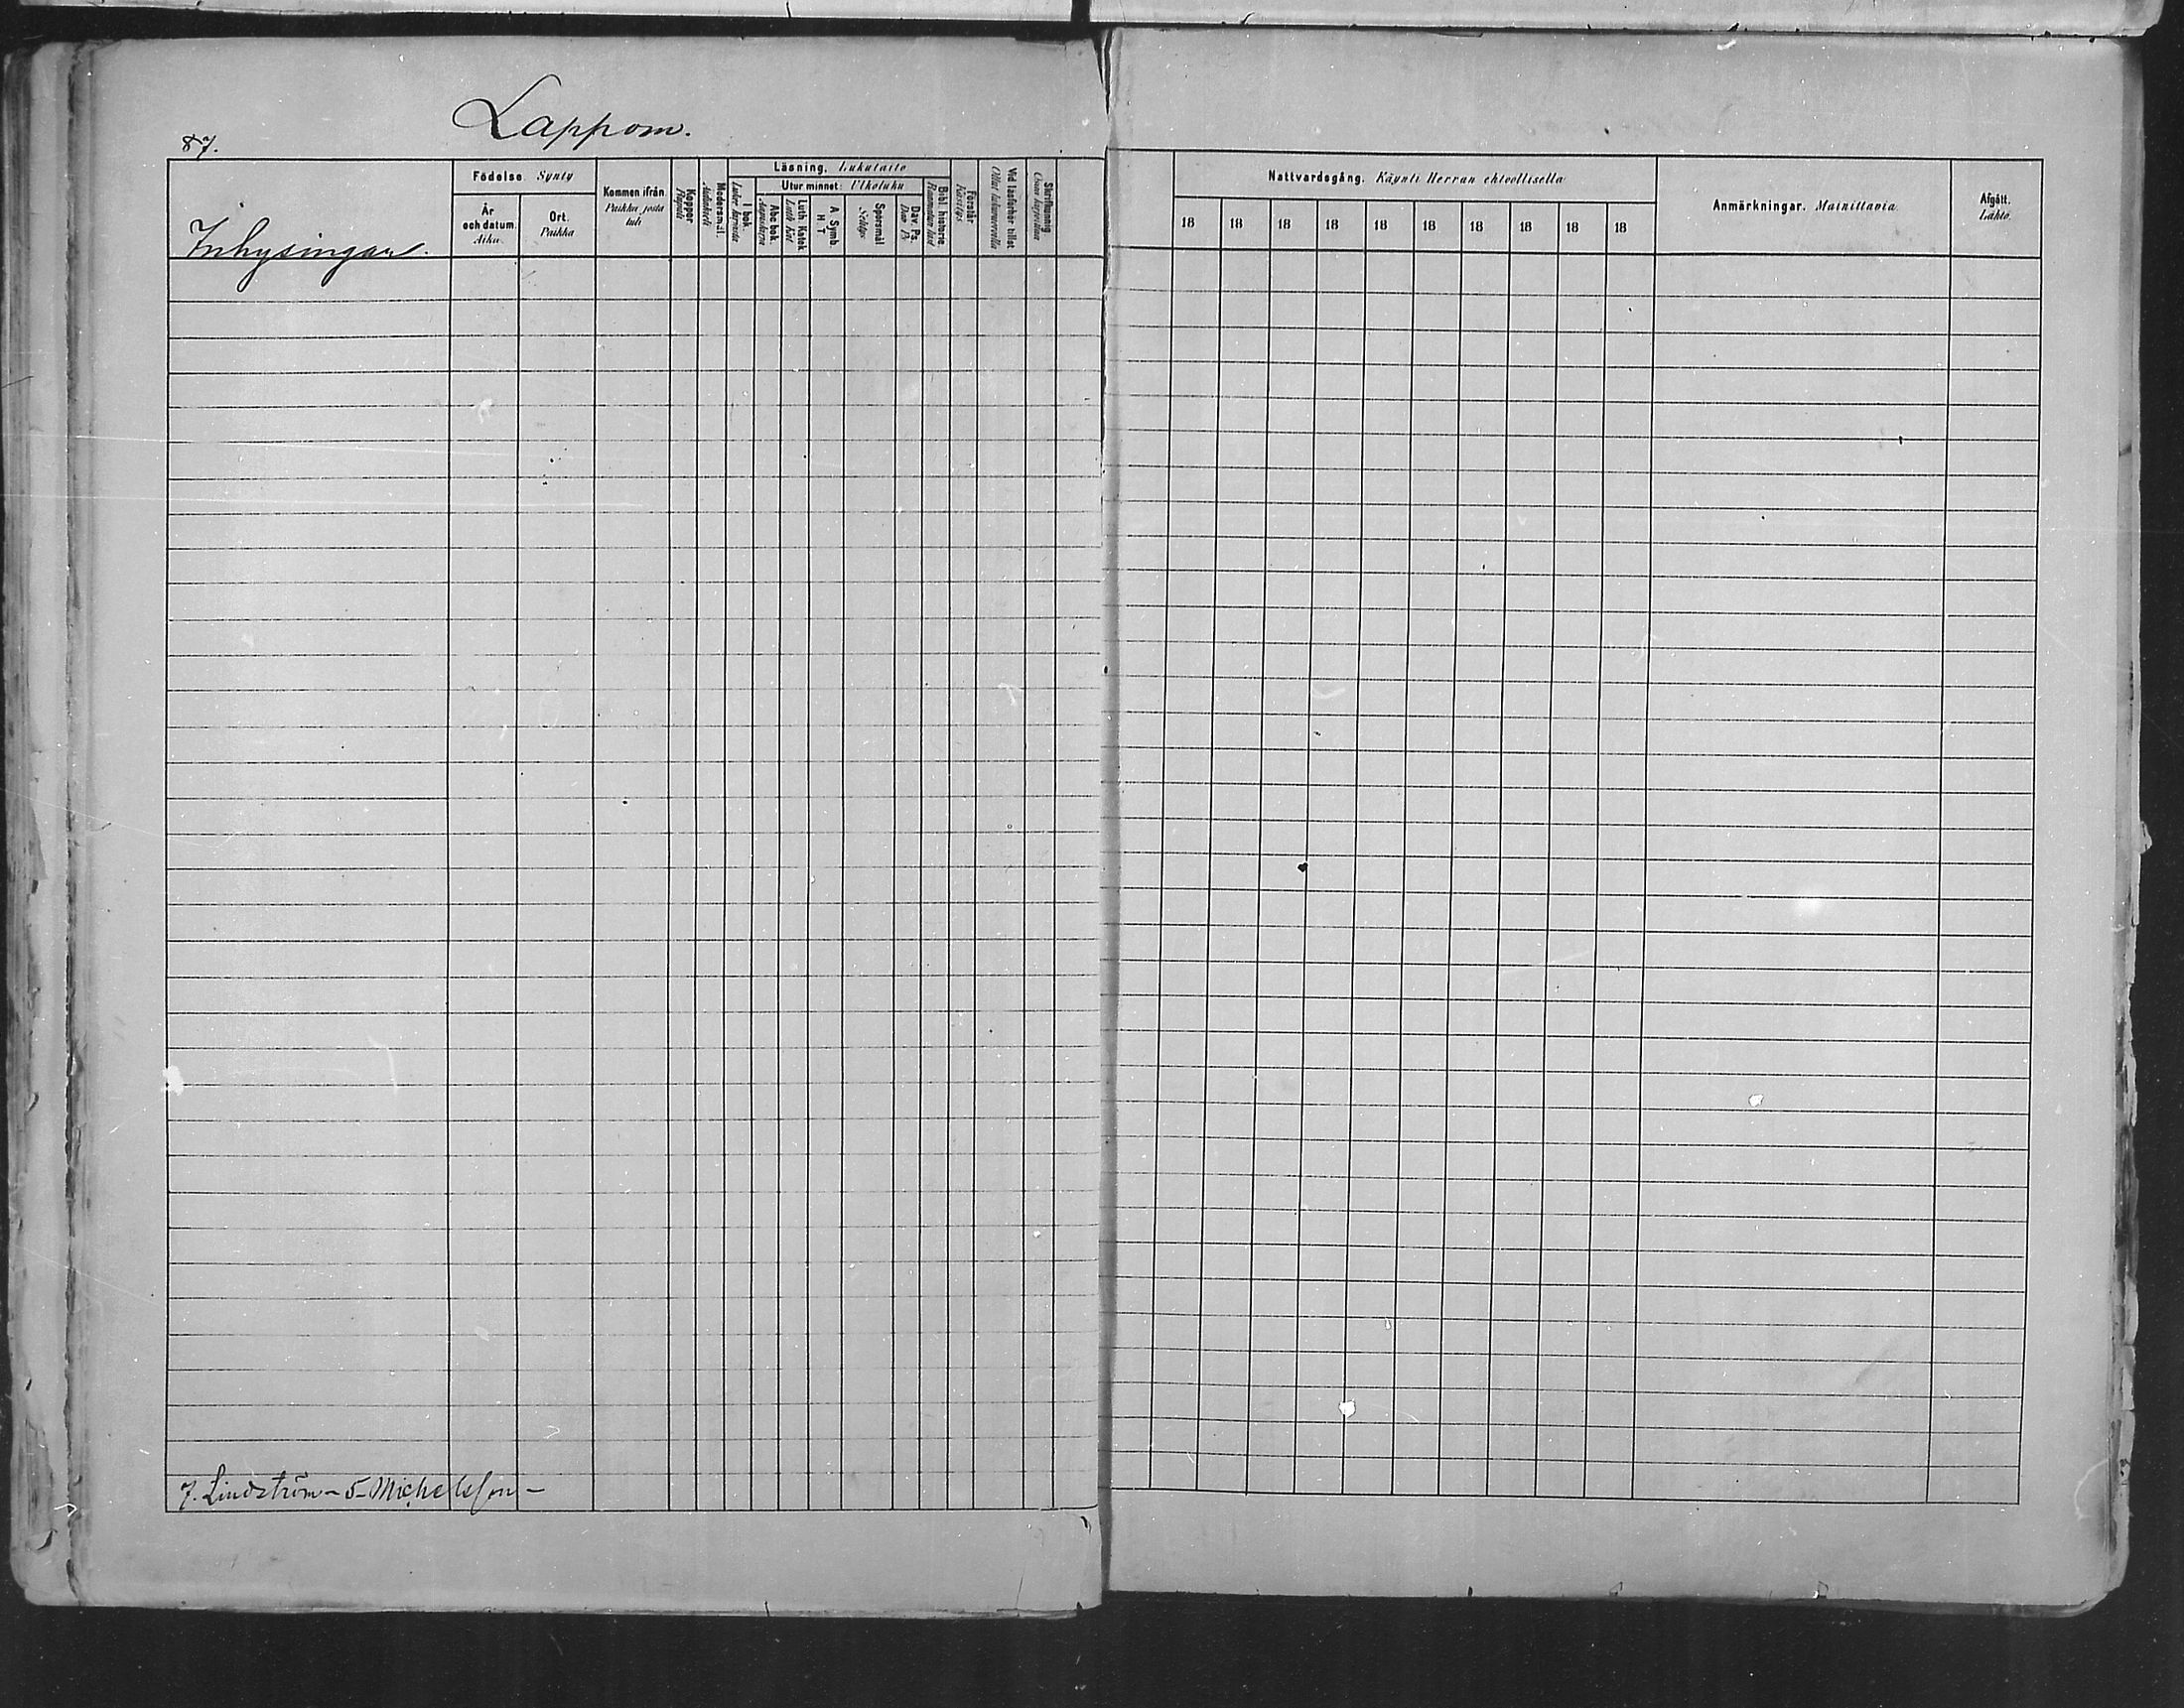 Lappom.
87.
Inhysingar.
Födelse. Synty
År och datum. Aika.
Ort. Paikka
Kommen ifrån. Paikka josta tuli
Koppor. Rupuli
Modersmål. Äidinkieli
Läsning. Lukutaito
I bok.
Utur minnet: Ulkoluku
Abc bok. Aapiskirja
Luth Katek. Luth Kat
A. Symb. H T
Spörsmål Selitys
Dav. Ps. Dav Ps
Bibl. historie.
Förstår. Käsitys.
Vid läsförhör tillst
Skriftkunnig.
Nattvardsgång. Käynti Herran ehtoollisella
18 18 18 18 18 18 18 18 18 18
Anmärkningar. Mainittavia.
Afgått. Lähtö.
7. Lindström – 5 – Michelsson –